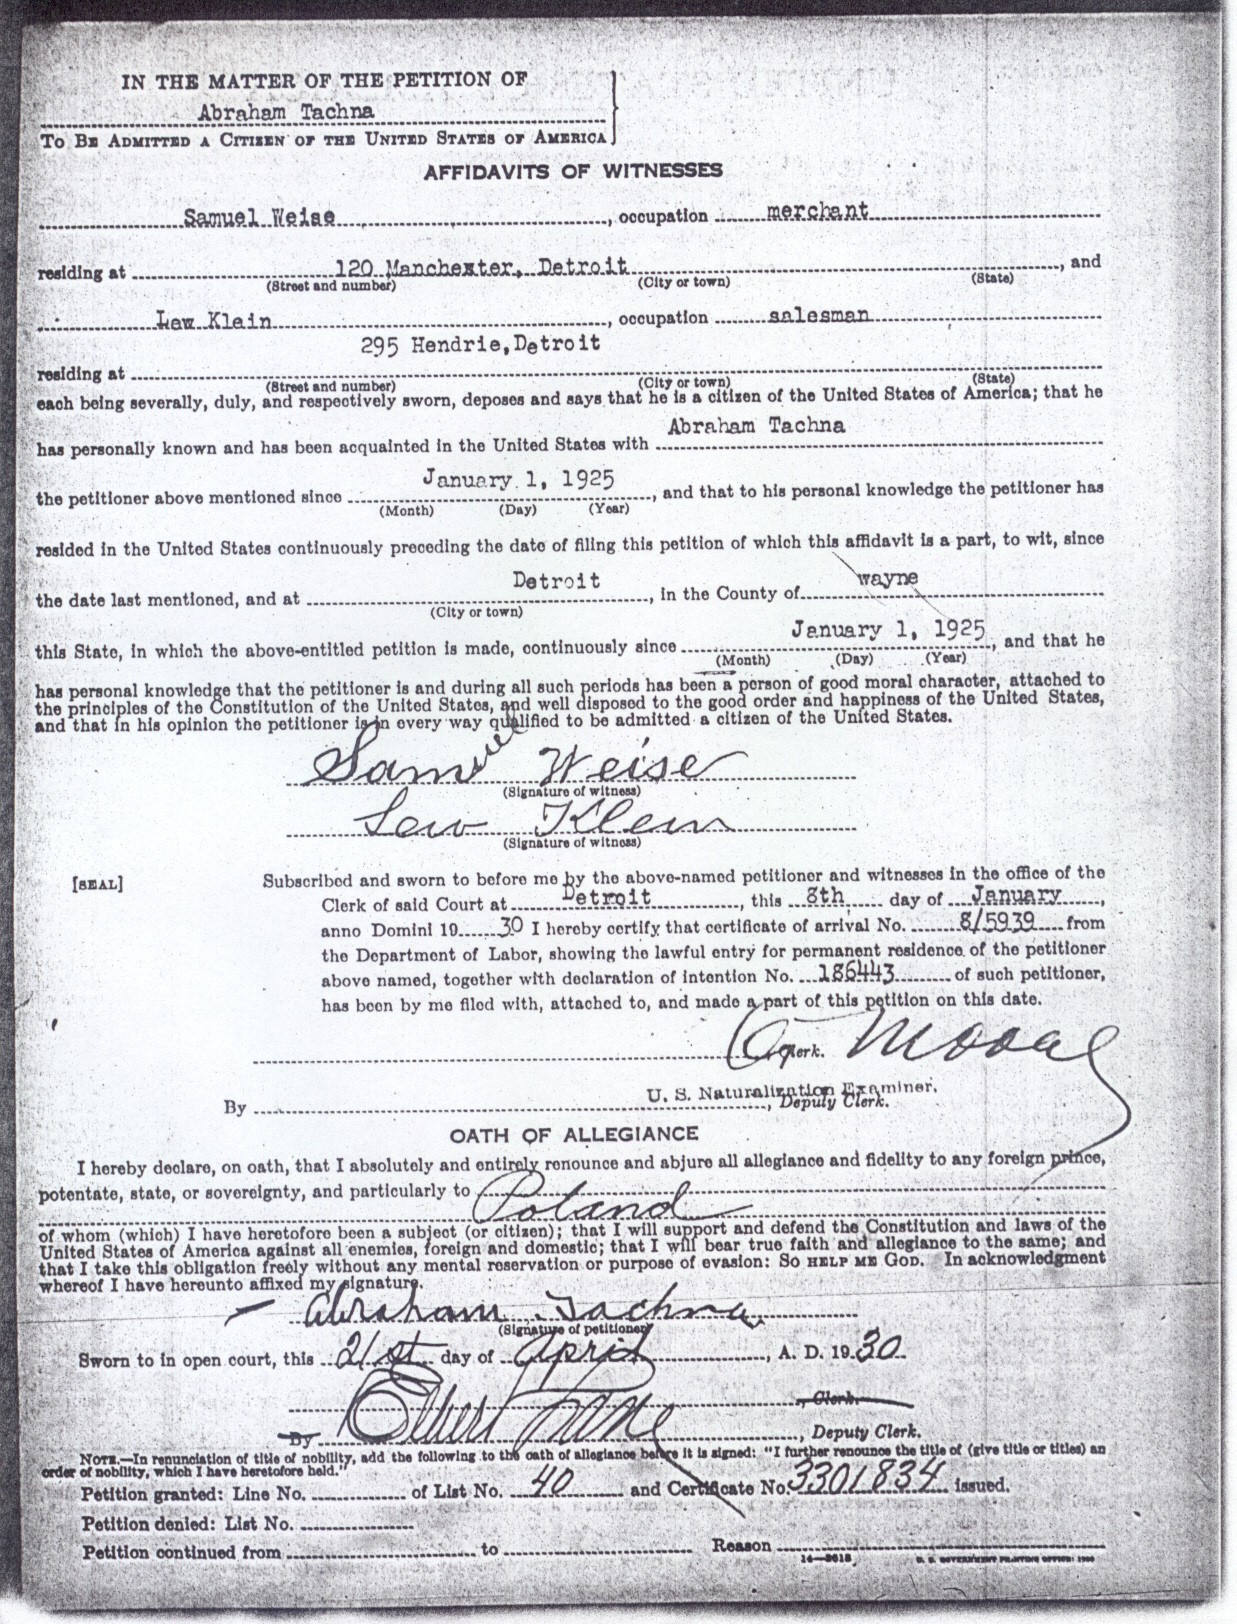 IN THE MATTER OF THE PETITION OF
Abraham Tachna
TO BE ADMITTED A CITIZEN OF THE UNITED STATES OF AMERICA
AFFIDAVITS OF WITNESSES
Samuel Weise, occupation merchant
residing at 120 Manchester, Detroit, and
(Street and number) (City or town) (State)
Lew Klein, occupation salesman
295 Hendrie, Detroit
residing at
(Street and number) (City or town) (State)
each being severally, duly, and respectively sworn, deposes and says that he is a citizen of the United States of America; that he
Abraham Tachna
has personally known and has been acquainted in the United States with
January 1, 1925
the petitioner above mentioned since , and that to his personal knowledge the petitioner has
(Month) (Day) (Year)
resided in the United States continuously preceding the date of filing this petition of which this affidavit is a part, to wit, since
Detroit wayne
the date last mentioned, and at , in the County of
(City or town)
January 1, 1925
this State, in which the above-entitled petition is made, continuously since , and that he
(Month) (Day) (Year)
has personal knowledge that the petitioner is and during all such periods has been a person of good moral character, attached to
the principles of the Constitution of the United States, and well disposed to the good order and happiness of the United States,
and that in his opinion the petitioner is in every way qualified to be admitted a citizen of the United States.
Samuel Weise
(Signature of witness)
Lew Klein
(Signature of witness)
[SEAL] Subscribed and sworn to before me by the above-named petitioner and witnesses in the office of the
Clerk of said Court at Detroit, this 8th day of January,
anno Domini 19 30 I hereby certify that certificate of arrival No. 8/5939 from
the Department of Labor, showing the lawful entry for permanent residence of the petitioner
above named, together with declaration of intention No. 186443 of such petitioner,
has been by me filed with, attached to, and made a part of this petition on this date.
Clerk.
U. S. Naturalization Examiner.
By , Deputy Clerk.
OATH OF ALLEGIANCE
I hereby declare, on oath, that I absolutely and entirely renounce and abjure all allegiance and fidelity to any foreign prince,
potentate, state, or sovereignty, and particularly to Poland
of whom (which) I have heretofore been a subject (or citizen); that I will support and defend the Constitution and laws of the
United States of America against all enemies, foreign and domestic; that I will bear true faith and allegiance to the same; and
that I take this obligation freely without any mental reservation or purpose of evasion: SO HELP ME GOD. In acknowledgment
whereof I have hereunto affixed my signature.
Abraham Tachna
(Signature of petitioner)
Sworn to in open court, this 21st day of April, A. D. 19 30
, Clerk.
By , Deputy Clerk.
NOTE.—In renunciation of title of nobility, add the following to the oath of allegiance before it is signed: "I further renounce the title of (give title or titles) an
order of nobility, which I have heretofore held."
Petition granted: Line No. of List No. 40 and Certificate No. 3301834 issued.
Petition denied: List No.
Petition continued from to Reason
14—2618 U. S. GOVERNMENT PRINTING OFFICE